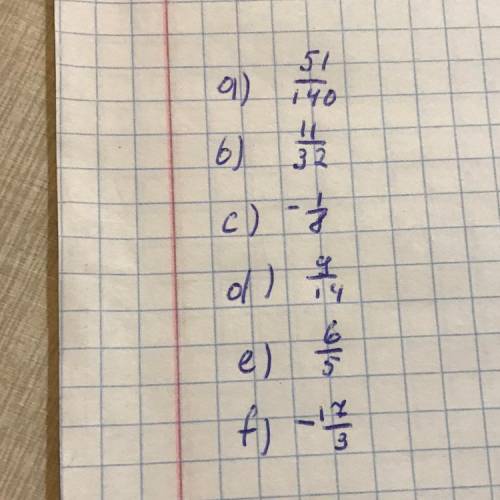 a) 51/140
b) 11/32
c) -1/8
d) 9/14
e) 6/5
f) -17/3